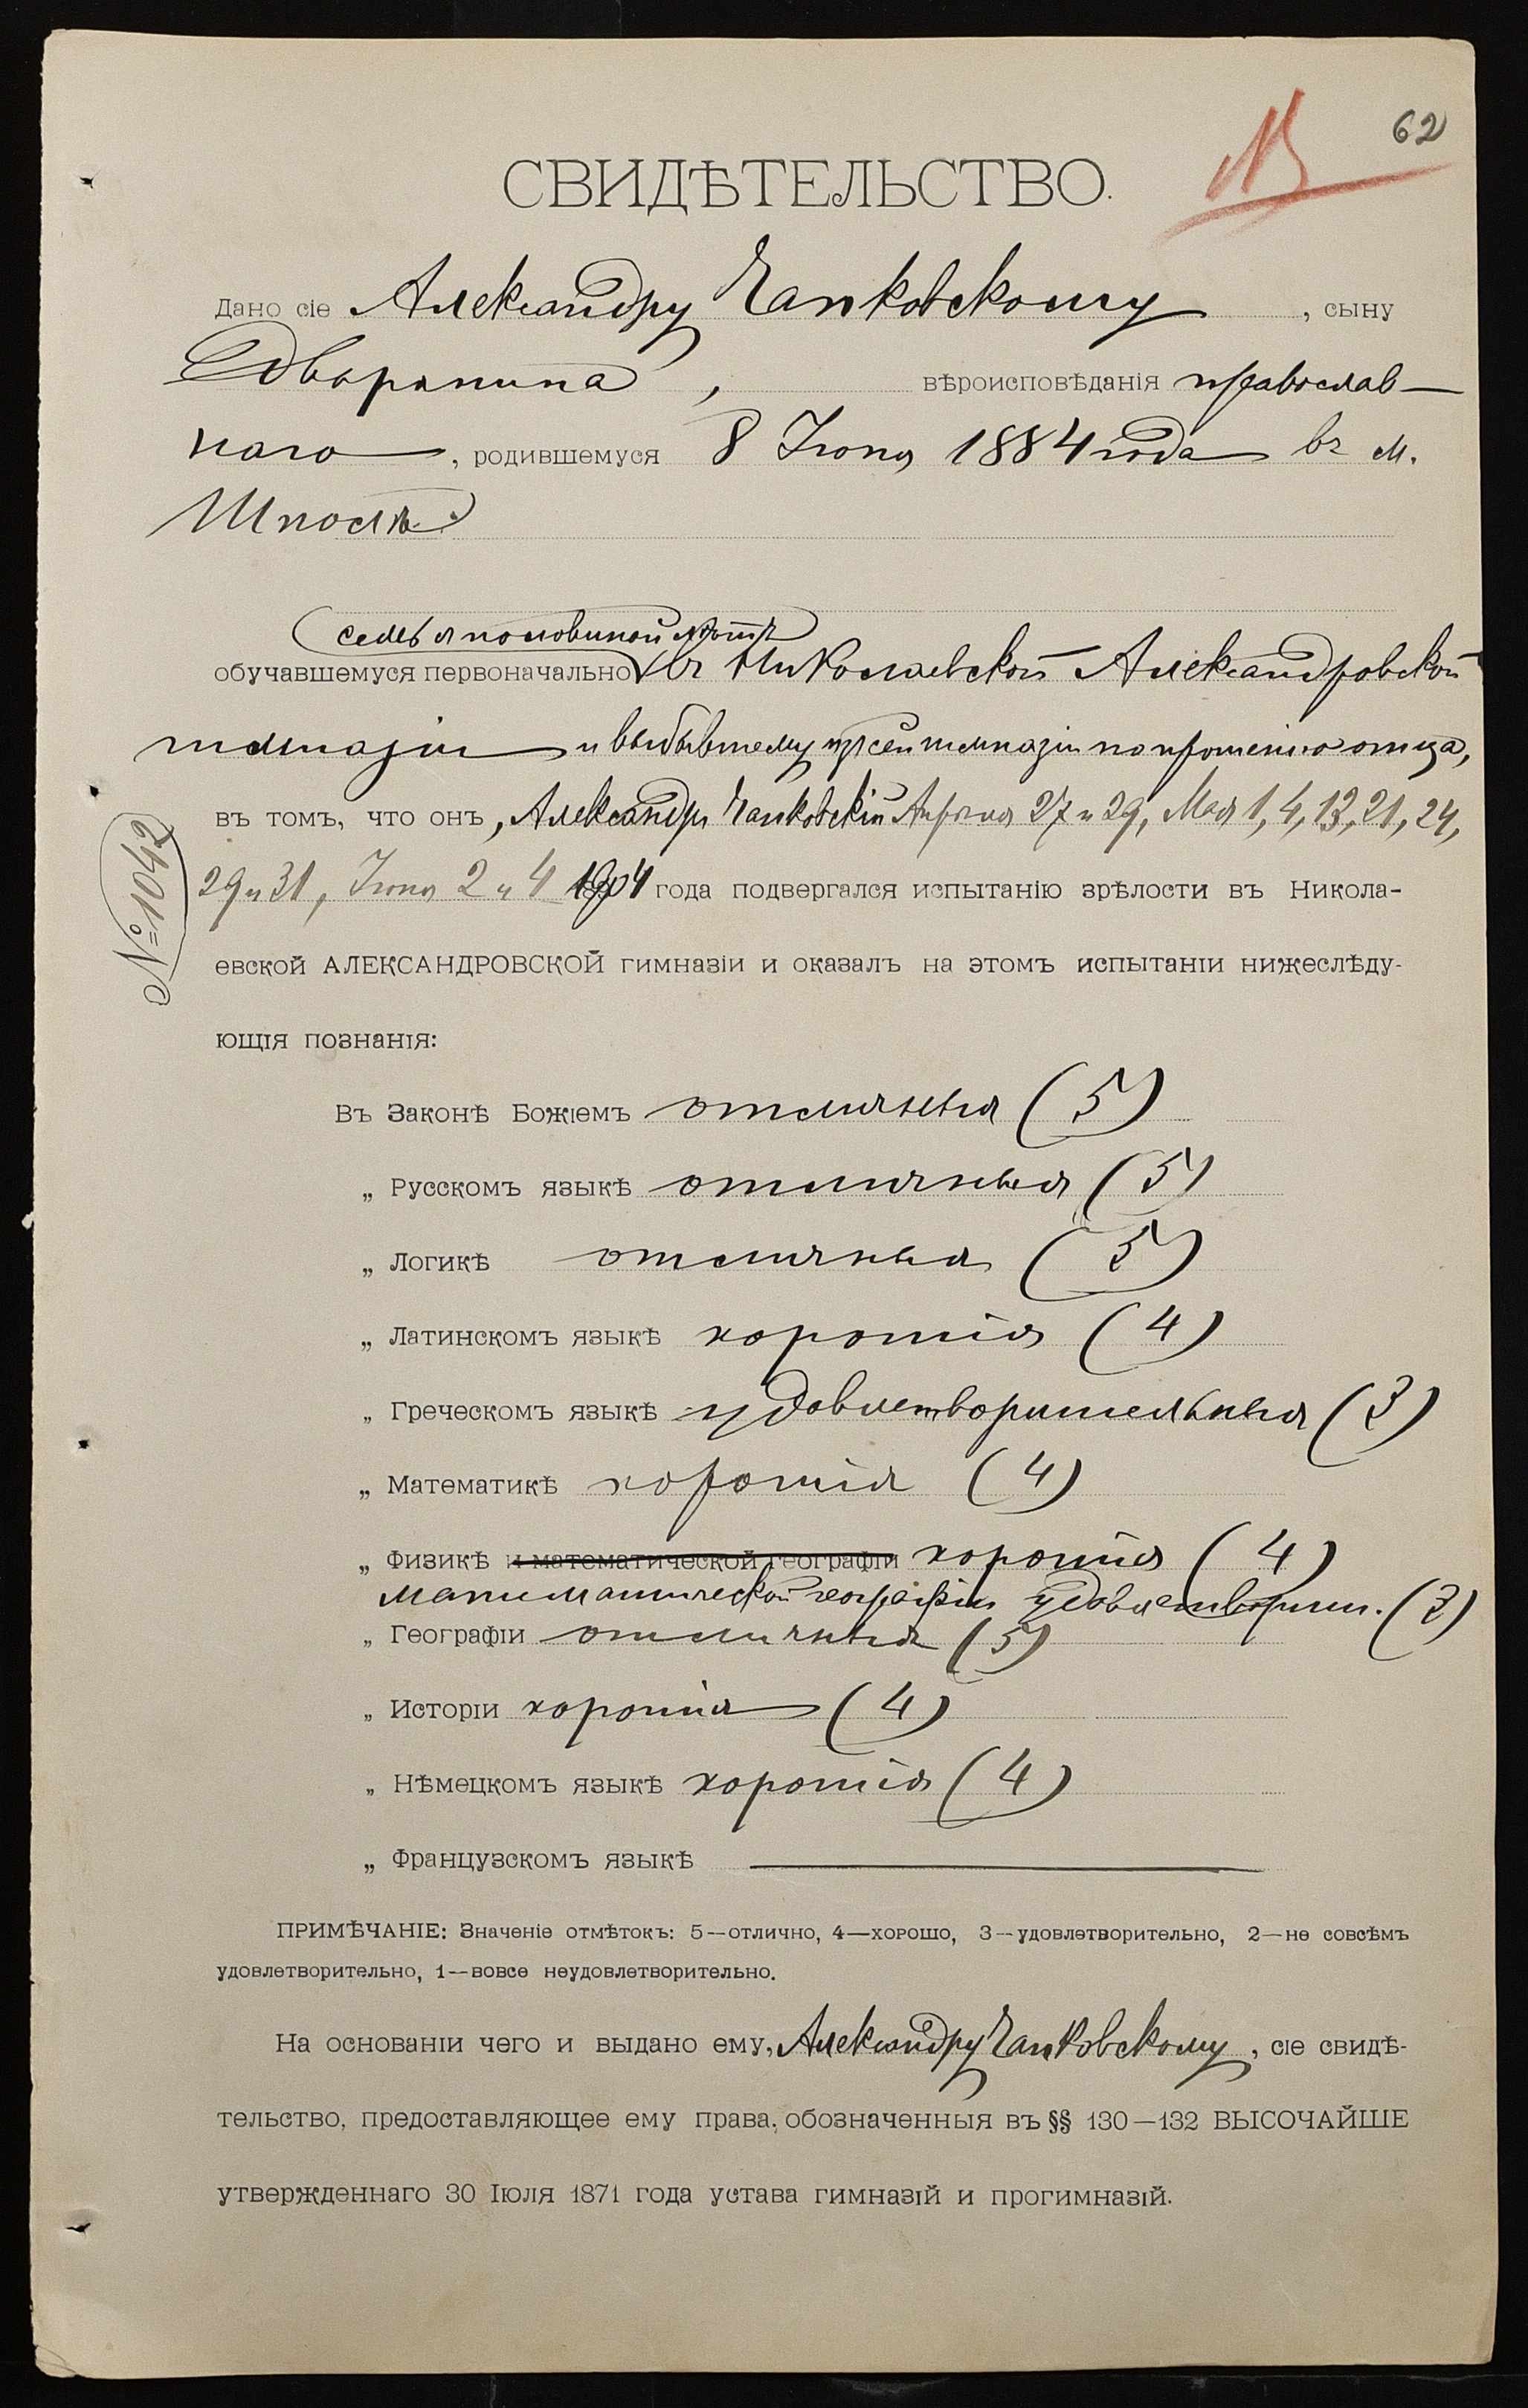 62
СВИДѢТЕЛЬСТВО.
Дано сіе Александру Чапковскому, сыну
дворянина, вѣроисповѣданія православ-
наго, родившемуся 8 Іюня 1884 года въ м.
Шполѣ.
семь съ половиной лѣтъ
обучавшемуся первоначально въ Николаевской Александровской
гимназіи и выбывшему изъ сей гимназіи по прошенію отца,
въ томъ, что онъ, Александръ Чапковскій Апрѣля 27 и 29, Мая 1, 4, 13, 21, 24,
№ 1042
29 и 31, Іюня 2 и 4 1904 года подвергался испытанію зрѣлости въ Никола-
евской АЛЕКСАНДРОВСКОЙ гимназіи и оказалъ на этомъ испытаніи нижеслѣду-
ющія познанія:
Въ Законѣ Божіемъ отличныя (5)
„ Русскомъ языкѣ отличныя (5)
„ Логикѣ отличныя (5)
„ Латинскомъ языкѣ хорошія (4)
„ Греческомъ языкѣ удовлетворительныя (3)
„ Математикѣ хорошія (4)
„ Физикѣ и математической географіи хорошія (4)
математической географіи удовлетворит. (3)
„ Географіи отличныя (5)
„ Исторіи хорошія (4)
„ Нѣмецкомъ языкѣ хорошія (4)
„ Французскомъ языкѣ
ПРИМѢЧАНІЕ: Значеніе отмѣтокъ: 5—отлично, 4—хорошо, 3—удовлетворительно, 2—не совсѣмъ
удовлетворительно, 1—вовсе неудовлетворительно.
На основаніи чего и выдано ему, Александру Чапковскому, сіе свидѣ-
тельство, предоставляющее ему права, обозначенныя въ §§ 130—132 ВЫСОЧАЙШЕ
утвержденнаго 30 Іюля 1871 года устава гимназій и прогимназій.